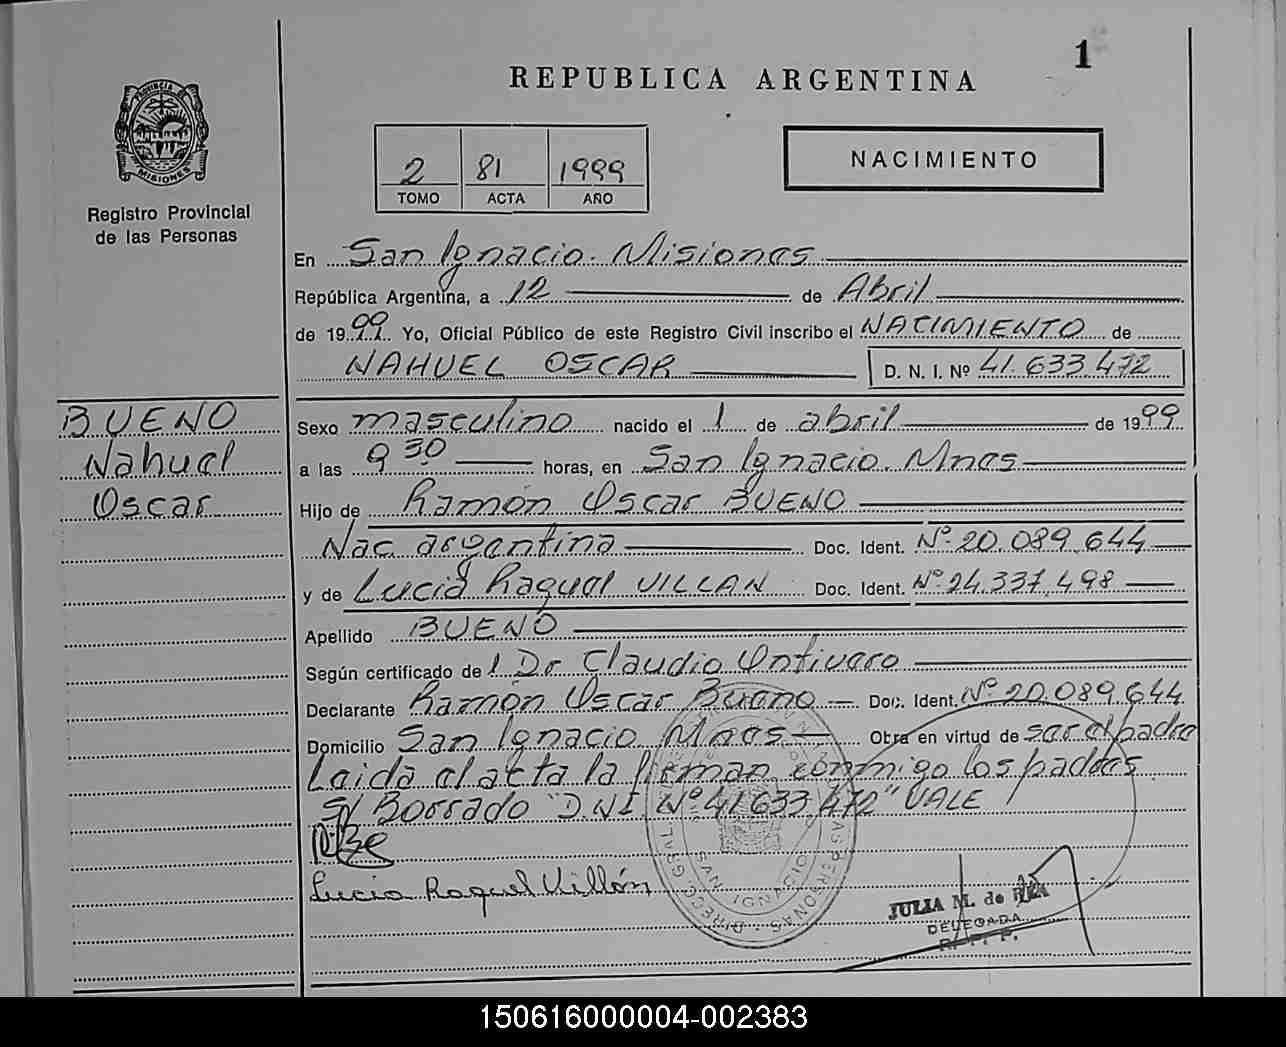 1
REPUBLICA ARGENTINA
PROVINCIA DE
MISIONES
Registro Provincial
de las Personas
2 81 1999
TOMO ACTA AÑO
NACIMIENTO
En San Ignacio. Misiones
República Argentina, a 12 de Abril
de 1999 Yo, Oficial Público de este Registro Civil inscribo el NACIMIENTO de
NAHUEL OSCAR D. N. I. Nº 41.633.472
BUENO
Nahuel
Oscar
Sexo masculino nacido el 1 de abril de 1999
a las 9 30 horas, en San Ignacio. Mnes
Hijo de Ramón Oscar BUENO
Nac argentina Doc. Ident. Nº 20.089.644
y de Lucia Raquel VILLAN Doc. Ident. Nº 24.337.498
Apellido BUENO
Según certificado del Dr Claudio Ontivero
Declarante Ramón Oscar Bueno Doc. Ident. Nº 20.089.644
Domicilio San Ignacio Mnes Obra en virtud de ser el padre
Leida el acta la firman conmigo los padres
S/ Borrado "D.N.I. Nº 41.633.472" VALE
Lucia Raquel Villán
SAN IGNACIO
JULIA M. de
DELEGADA
R. P. P.
150616000004-002383